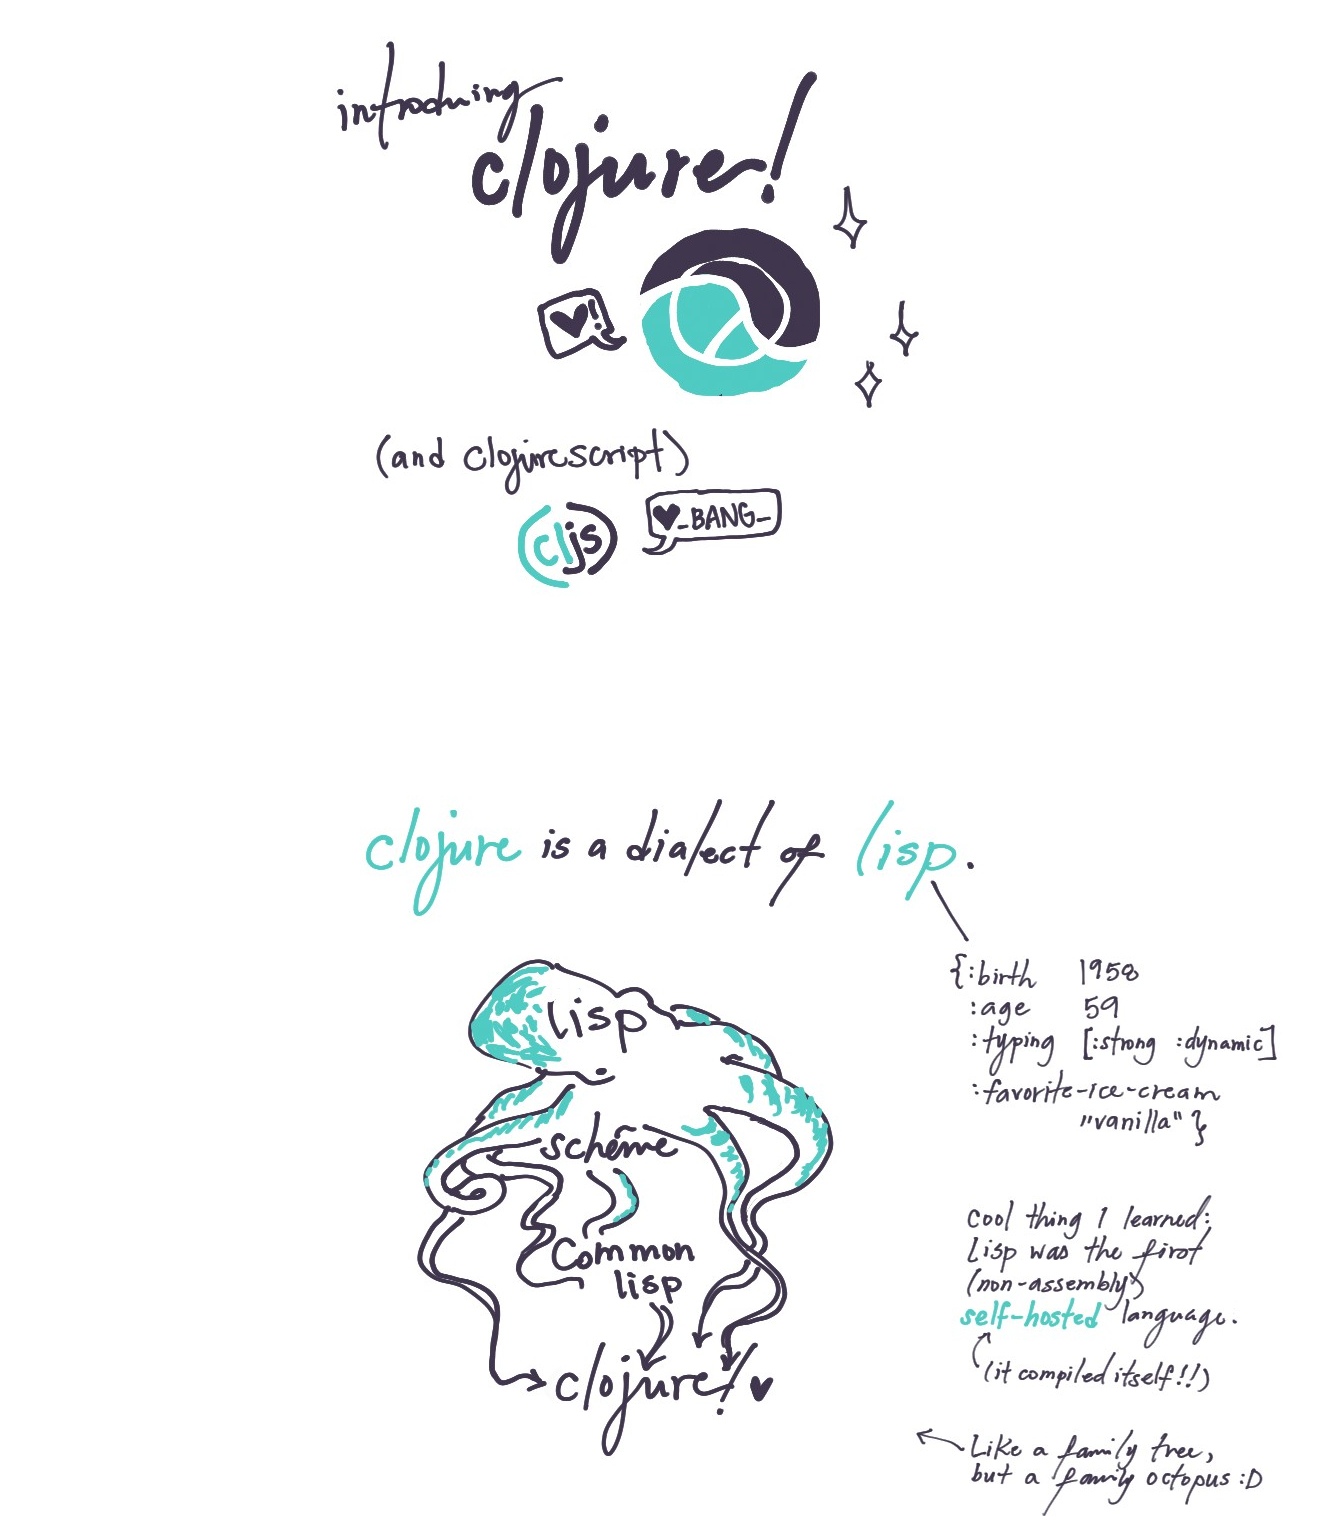 introduing
clojure!
♥!
(and clojurescript)
(cljs)
♥_BANG_
clojure is a dialect of lisp.
{:birth 1958
:age 59
:typing [:strong :dynamic]
:favorite-ice-cream
"vanilla"}
lisp
scheme
Common
lisp
clojure! ♥
cool thing I learned:
Lisp was the first
(non-assembly)
self-hosted language.
(it compiled itself!!)
Like a family tree,
but a family octopus :D